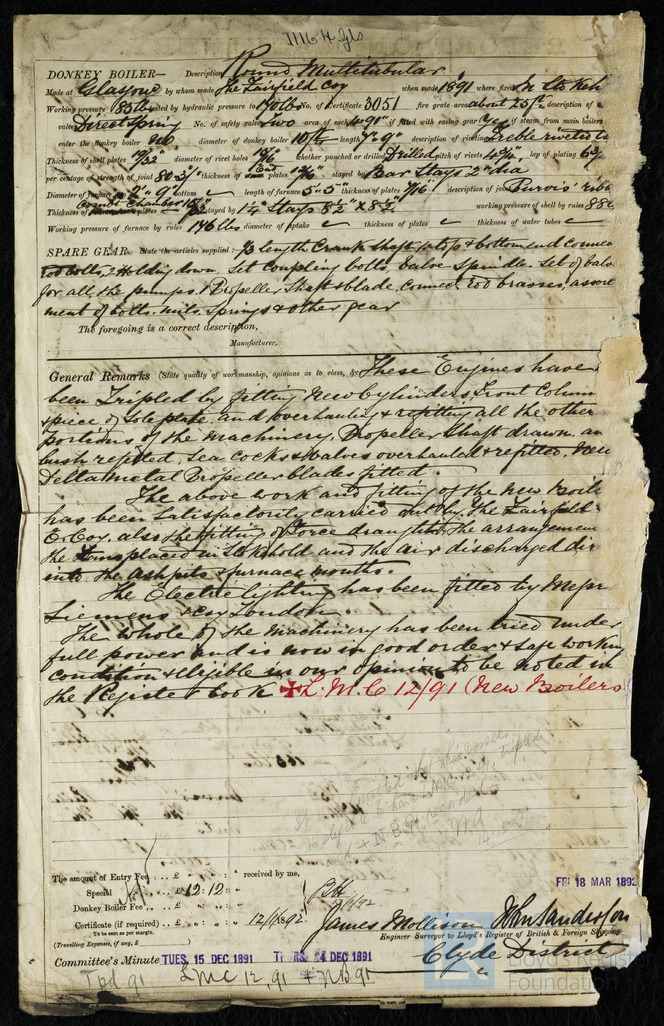 DONKEY BOILER— Description Round Multitubular
Made at Glasgow by whom made The Fairfield Coy when made 1891 where fixed In Stokeh
Working pressure 185lb tested by hydraulic pressure to 170lb No. of Certificate 3051 fire grate area about 25ft description of s
valves Direct Spring No. of safety valves Two area of each 4.91" if fitted with easing gear Yes if steam from main boilers
enter the donkey boiler no diameter of donkey boiler 10ft length 7'9" description of riveting Treble riveted la
Thickness of shell plates 21/32 diameter of rivet holes 15/16" whether punched or drilled Drilled pitch of rivets 4 3/4" lap of plating 6 3/4
per centage of strength of joint 80.3 thickness of End plates stayed by Bar Stays 2" dia
Diameter of furnace 2'9" bottom length of furnace 5'.5" thickness of plates 7/16 description of joint Purvis' ribb
Thickness of combn chamber plates stayed by 1¼ Stays 8½" x 8½" working pressure of shell by rules 85lb
Working pressure of furnace by rules 176lbs diameter of uptake thickness of plates thickness of water tubes
SPARE GEAR. State the articles supplied:— 1/3 length Crank Shaft, 2 top & bottom end connec
rod bolts, 2 Holding down. Set coupling bolts, Valve Spindle. Set of valv
for all the pumps. 1 Propeller Shaft & blade, connect. rod brasses, assort
ment of bolts. nuts. Springs & other gear
The foregoing is a correct description,
Manufacturer.
General Remarks (State quality of workmanship, opinions as to class, &c. These Engines have
been Tripled by fitting New Cylinders, Front Colum
& piece of sole plate. and overhauling & refitting all the other
portions of the machinery. Propeller shaft drawn. an
bush refitted. Sea cocks & valves overhauled & refitted. New
Delta metal Propeller blades fitted.
The above work and fitting of the New Boile
has been satisfactorily carried out by the Fairfield
E. Coy. also the fitting of Force draught. the arrangemen
the Fans placed in Stokehold and the air discharged dir
into the ashpits & furnace mouths.
The Electric lighting has been fitted by Messr
Siemens & Coy London.
The whole of the machinery has been tried under
full power and is now in good order & safe working
condition & eligible in our opinion to be noted in
the Register book ✠ L.M.C 12/91 (New Boilers
The amount of Entry Fee .. £ : : received by me,
Special .. £ 12:12:
Donkey Boiler Fee .. £ : :
Certificate (if required) .. £ : : 12/1/1892
To be sent as per margin.
(Travelling Expenses, if any, £ )
FRI 18 MAR 1892
James Mollison John Sanderson
Engineer Surveyor to Lloyd's Register of British & Foreign Shipping
Clyde District
Committee's Minute TUES, 15 DEC 1891 THURS, 24 DEC 1891
LMC 12,91 + NB 91
Lloyd's Register
Foundation